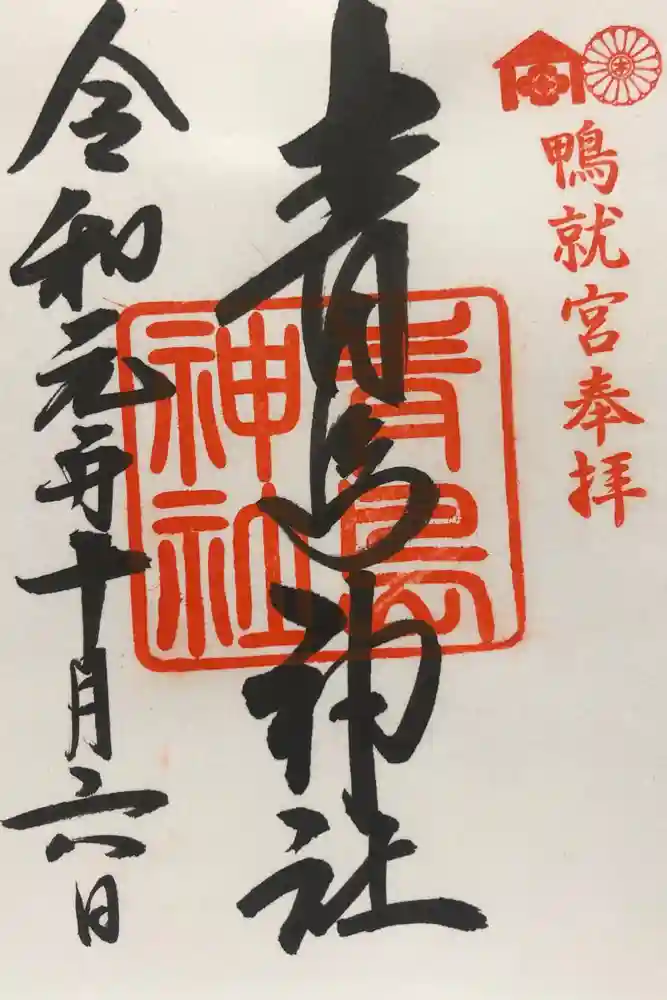 鴨就宮奉拝
青島神社
青島神社
令和元年十月六日